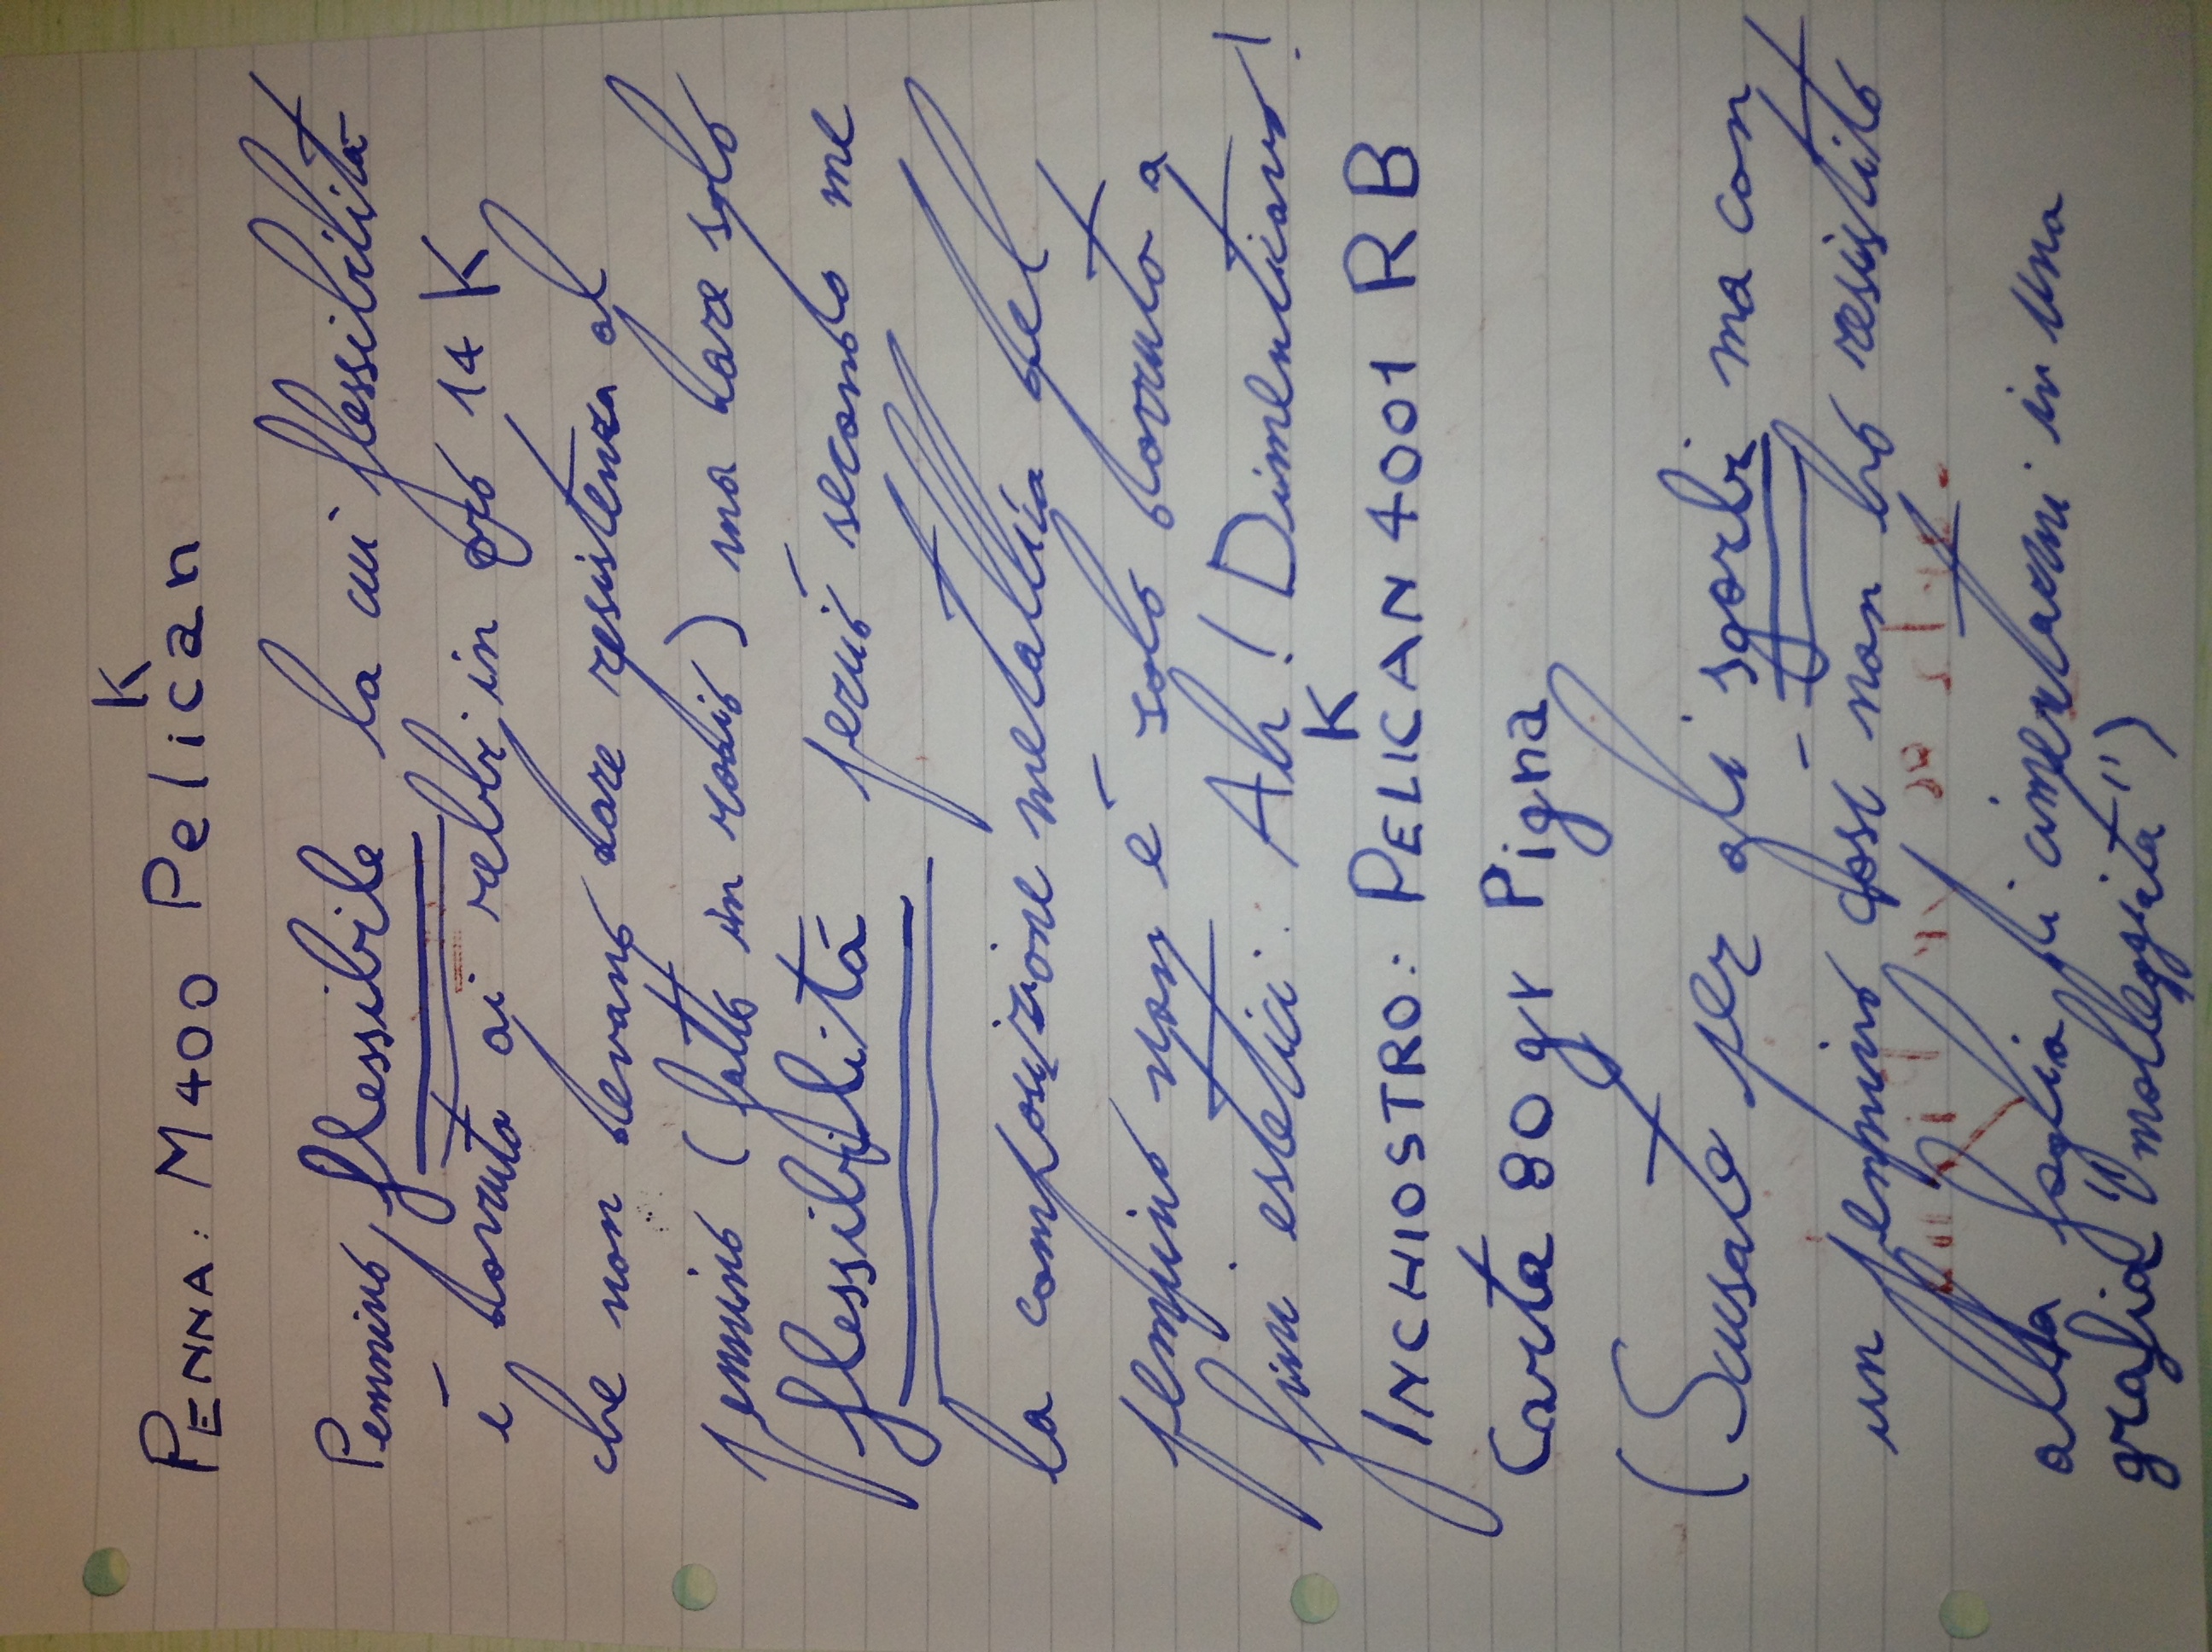 PENNA: M400 Pelican
K
Pennino flessibile la cui flessibilità
è dovuta ai rebbi, in oro 14 K
che non devano dare resistenza al
pennino (fatto in rodio) ma dare solo
flessibilità perciò secondo me
la composizione metallica del
pennino non è solo dovuto a
fini estetici. Ah! Dimenticavo!
K
INCHIOSTRO: PELICAN 4001 RB
Carta 80 gr Pigna
(Scusate per gli sgorbi ma con
un pennino così non ho resistito
alla voglia di cimentarmi in una
grafia "molleggiata")